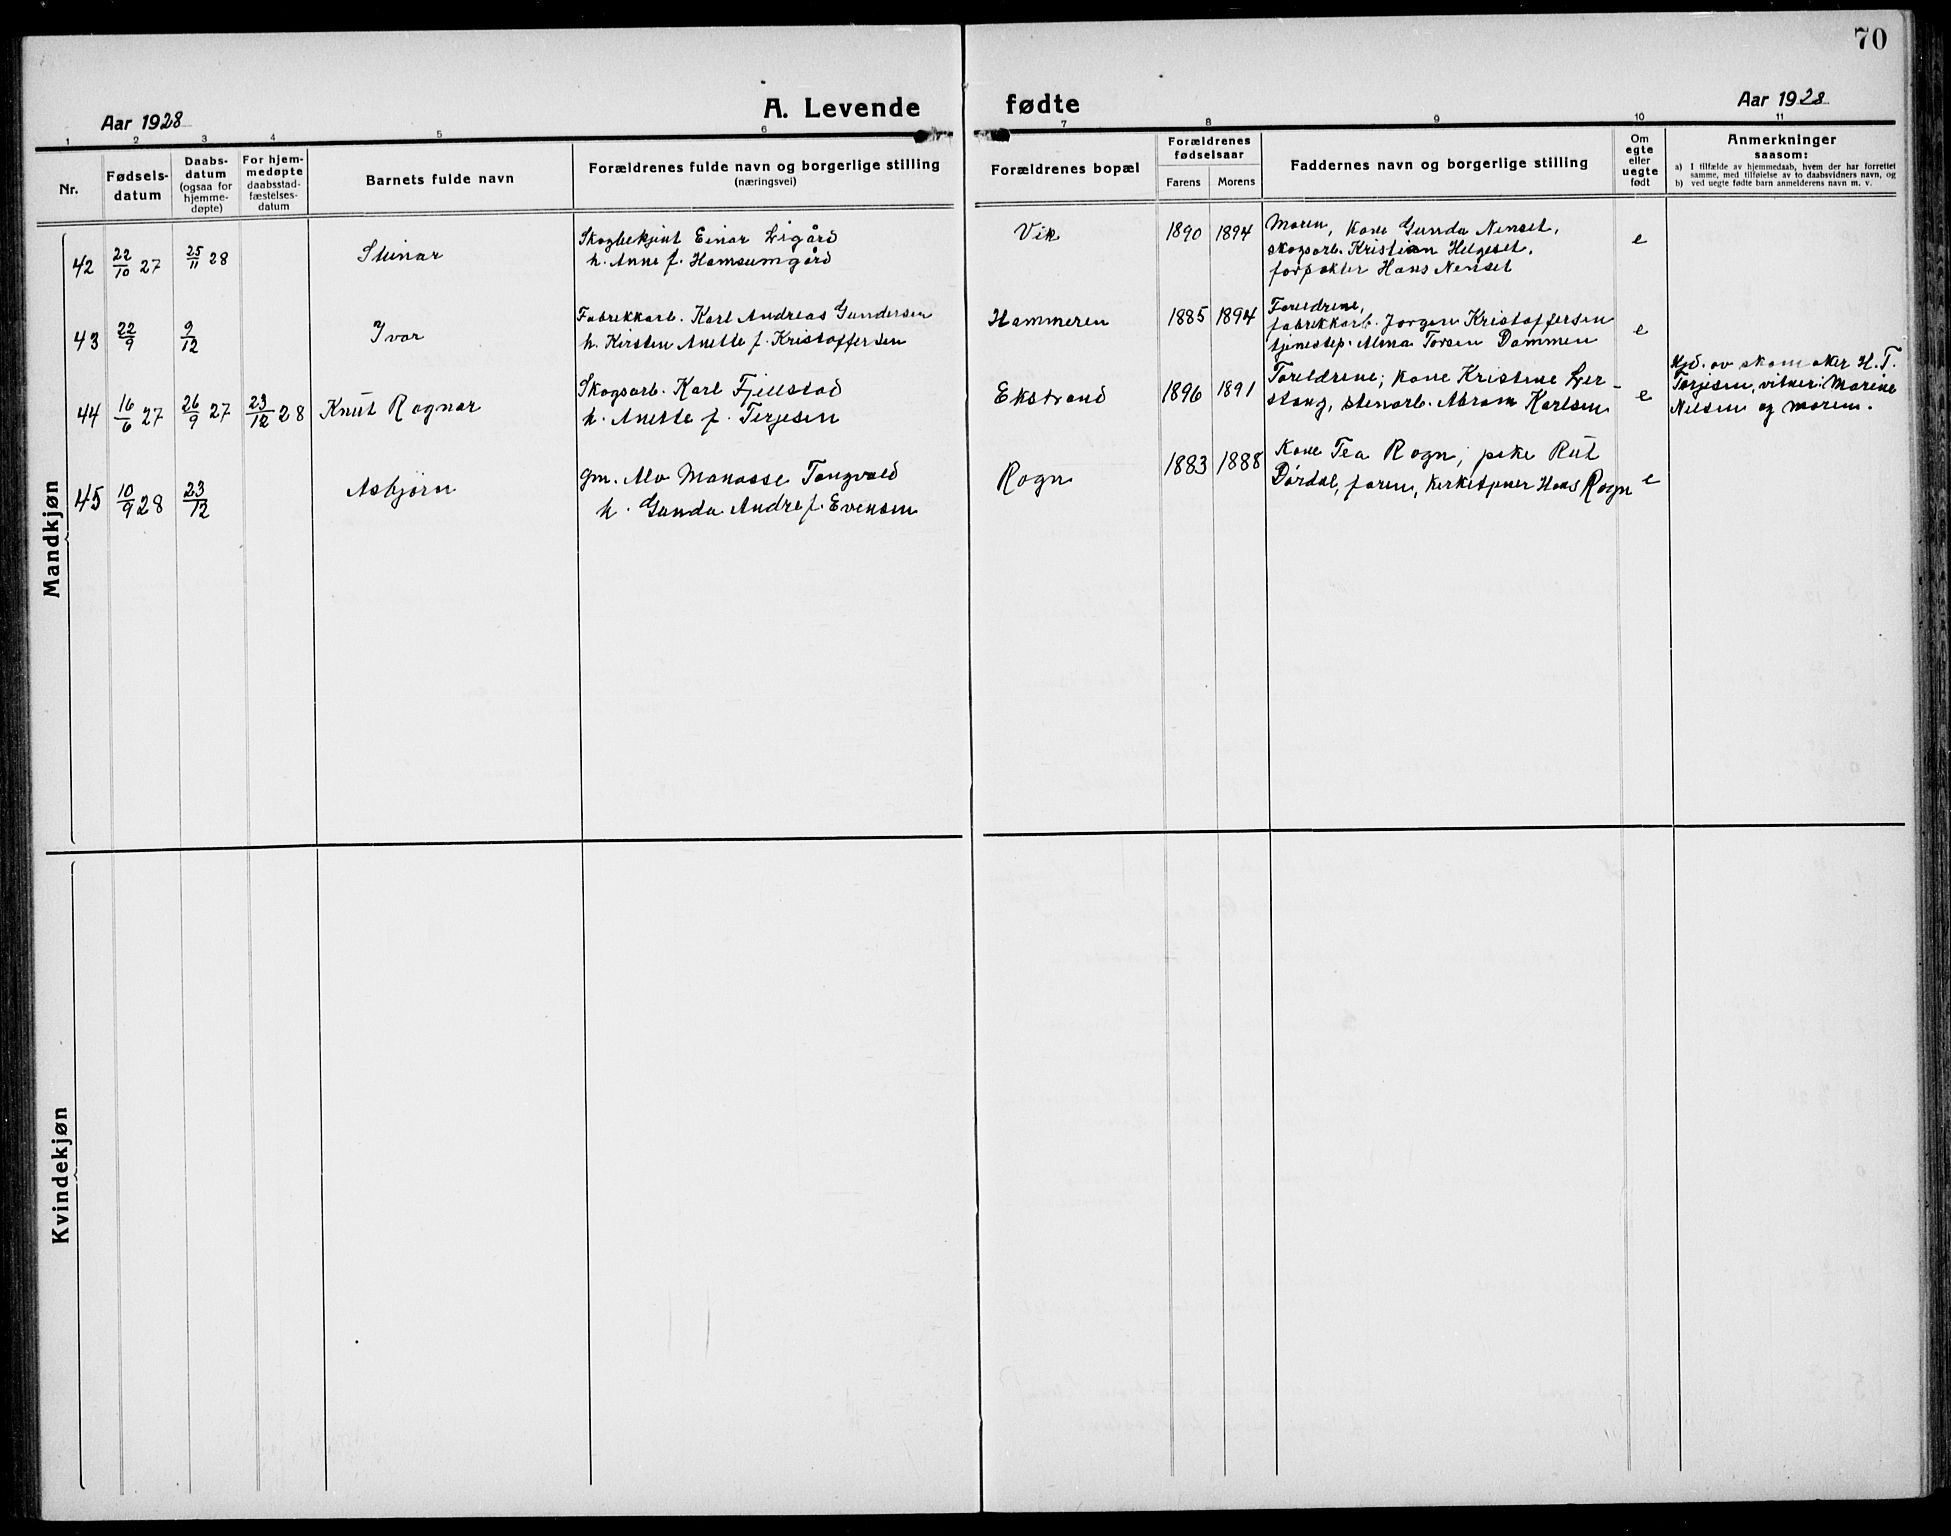 70
Aar 1928
A. Levende fødte
Aar 1928
1 2 3 4 5 6 7 8 9 10 11
Nr.
Fødsels-
datum
Daabs-
datum
(ogsaa for
hjemme-
døpte)
For hjem-
medøpte
daabsstad-
fæstelses-
datum
Barnets fulde navn
Forældrenes fulde navn og borgerlige stilling
(næringsvei)
Forældrenes bopæl
Forældrenes
fødselsaar
Farens Morens
Faddernes navn og borgerlige stilling
Om
egte
eller
uegte
født
Anmerkninger
saasom:
a) I tilfælde av hjemmedaab, hvem der har forrettet
samme, med tilføielse av to daabsvidners navn, og
b) ved uegte fødte barn anmelderens navn m. v.
Mandkjøn
42 22/10 27 25/11 28 Steinar
Skogbetjent Einar Ligård
h. Anne f. Hamsumgård
Vik 1890 1894
Moren, Kone Gunda Nenset,
skogsarb. Kristian Helgeset,
forpakter Hans Nenset
e
43 22/9 9/12 Ivar
Fabrikkarb. Karl Andreas Gundersen
h. Kirsten Anette f. Kristoffersen
Hammeren 1885 1894
Foreldrene,
fabrikkarb. Jørgen Kristoffersen
tjenestep. Alma Torsen Dammen
e
44 16/6 27 26/9 27 23/12 28 Knut Ragnar
Skogsarb. Karl Fjellstad
h. Anette f. Terjesen
Ekstrand 1896 1891
Foreldrene; Kone Kristine Ler-
stang, stenarb. Abram Karlsen
e
Hjd. av skomaker H. T.
Torjesen, vitner: Marine
Nilsen og moren.
45 10/9 28 23/12 Asbjørn
Gm. Alv Manasse Tangvald
h. Gunda Andrea f. Evensen
Rogn 1883 1888
Kone Tea Rogn; pike Rut
Dørdal, faren, Kirketjener Hans Rogn
e
Kvindekjøn